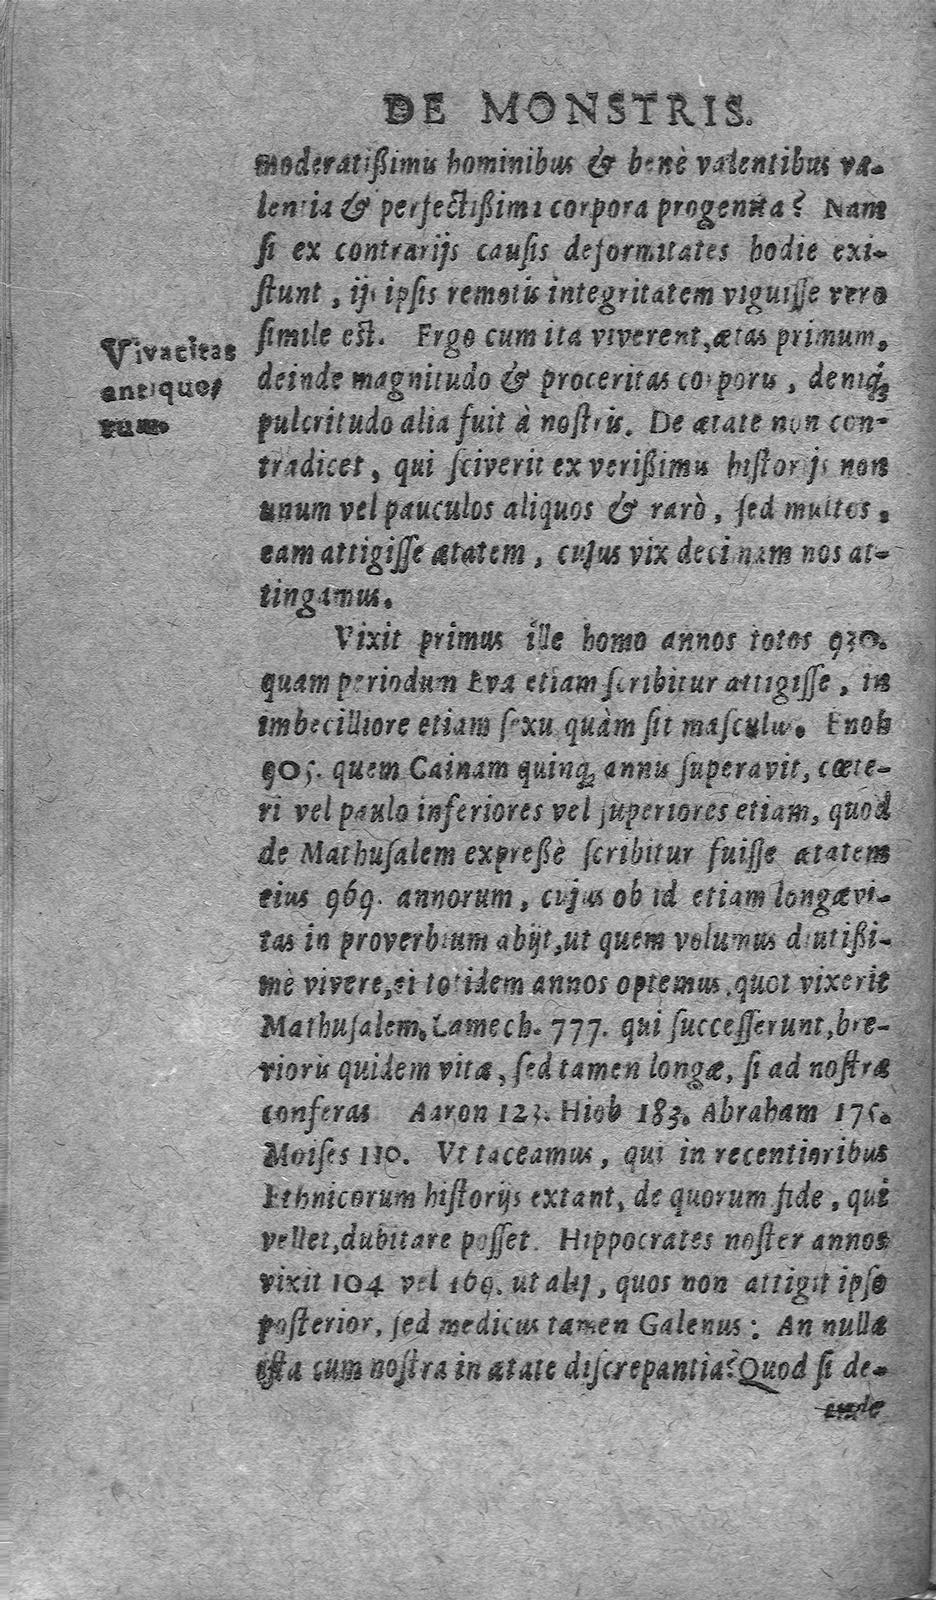 DE MONSTRIS.
moderatißimis hominibus & benè valentibus va-
lentia & perfectißima corpora progenita? Nam
ſi ex contrarijs cauſis deformitates hodie exi-
ſtunt, ijs ipſis remotis integritatem viguiſſe vero
ſimile est. Ergo cum ita viverent, ætas primum,
deinde magnitudo & proceritas corporis, deniq́;
pulcritudo alia fuit à noſtris. De ætate non con-
tradicet, qui ſciverit ex verißimis hiſtorijs non
unum vel pauculos aliquos & rarò, ſed multos,
eam attigiſſe ætatem, cujus vix decimam nos at-
tingamus.
Vivacitas
antiquo-
rum.
Vixit primus ille homo annos totos 930.
quam periodum Eva etiam ſcribitur attigiſſe, in
imbecilliore etiam ſexu quàm ſit maſculus. Enoh
905. quem Cainam quinq; annis ſuperavit, cæte-
ri vel paulo inferiores vel ſuperiores etiam, quod
de Mathuſalem expreßè ſcribitur fuiſſe ætatem
eius 969. annorum, cujus ob id etiam longævi-
tas in proverbium abijt, ut quem volumus diutißi-
mè vivere, ei totidem annos optemus, quot vixerit
Mathuſalem. Lamech. 777. qui ſucceſſerunt, bre-
vioris quidem vitæ, ſed tamen longæ, ſi ad noſtræ
conferas. Aaron 123. Hiob 183. Abraham 175.
Moiſes 110. Vt taceamus, qui in recentioribus
Ethnicorum hiſtorijs extant, de quorum fide, qui
vellet, dubitare poſſet. Hippocrates noſter annos
vixit 104 vel 109. ut alij, quos non attigit ipſo
poſterior, ſed medicus tamen Galenus: An nulla
iſta cum noſtra in ætate diſcrepantia? Quod ſi de-
inde